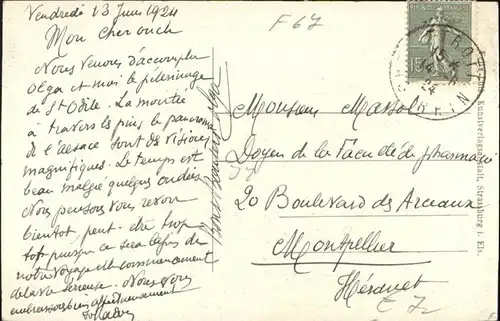 Vendredi 13 Juin 1924
F 67
Mon cher oncle
Nous venons d'accomplir
Olga et moi le pélerinage
de St Odile. La montée
à travers les pins le panorama
de l'alsace sont des visions
magnifiques. Le temps est
beau malgré quelques ondées
Nous pensons vous revoir
bientot peut-être trop
tot puisque ce sera la fin de
notre voyage et le commencement
de la vie serieuse. Nous vous
embrassons bien affectueusement
Bons baisers Olga
Monsieur Massol
Doyen de la Faculté de pharmacie
20 Boulevard des Arceaux
Montpellier
Hérault
E 72
15
RHIN
Kunstverlagsanstalt, Strassburg i. Els.